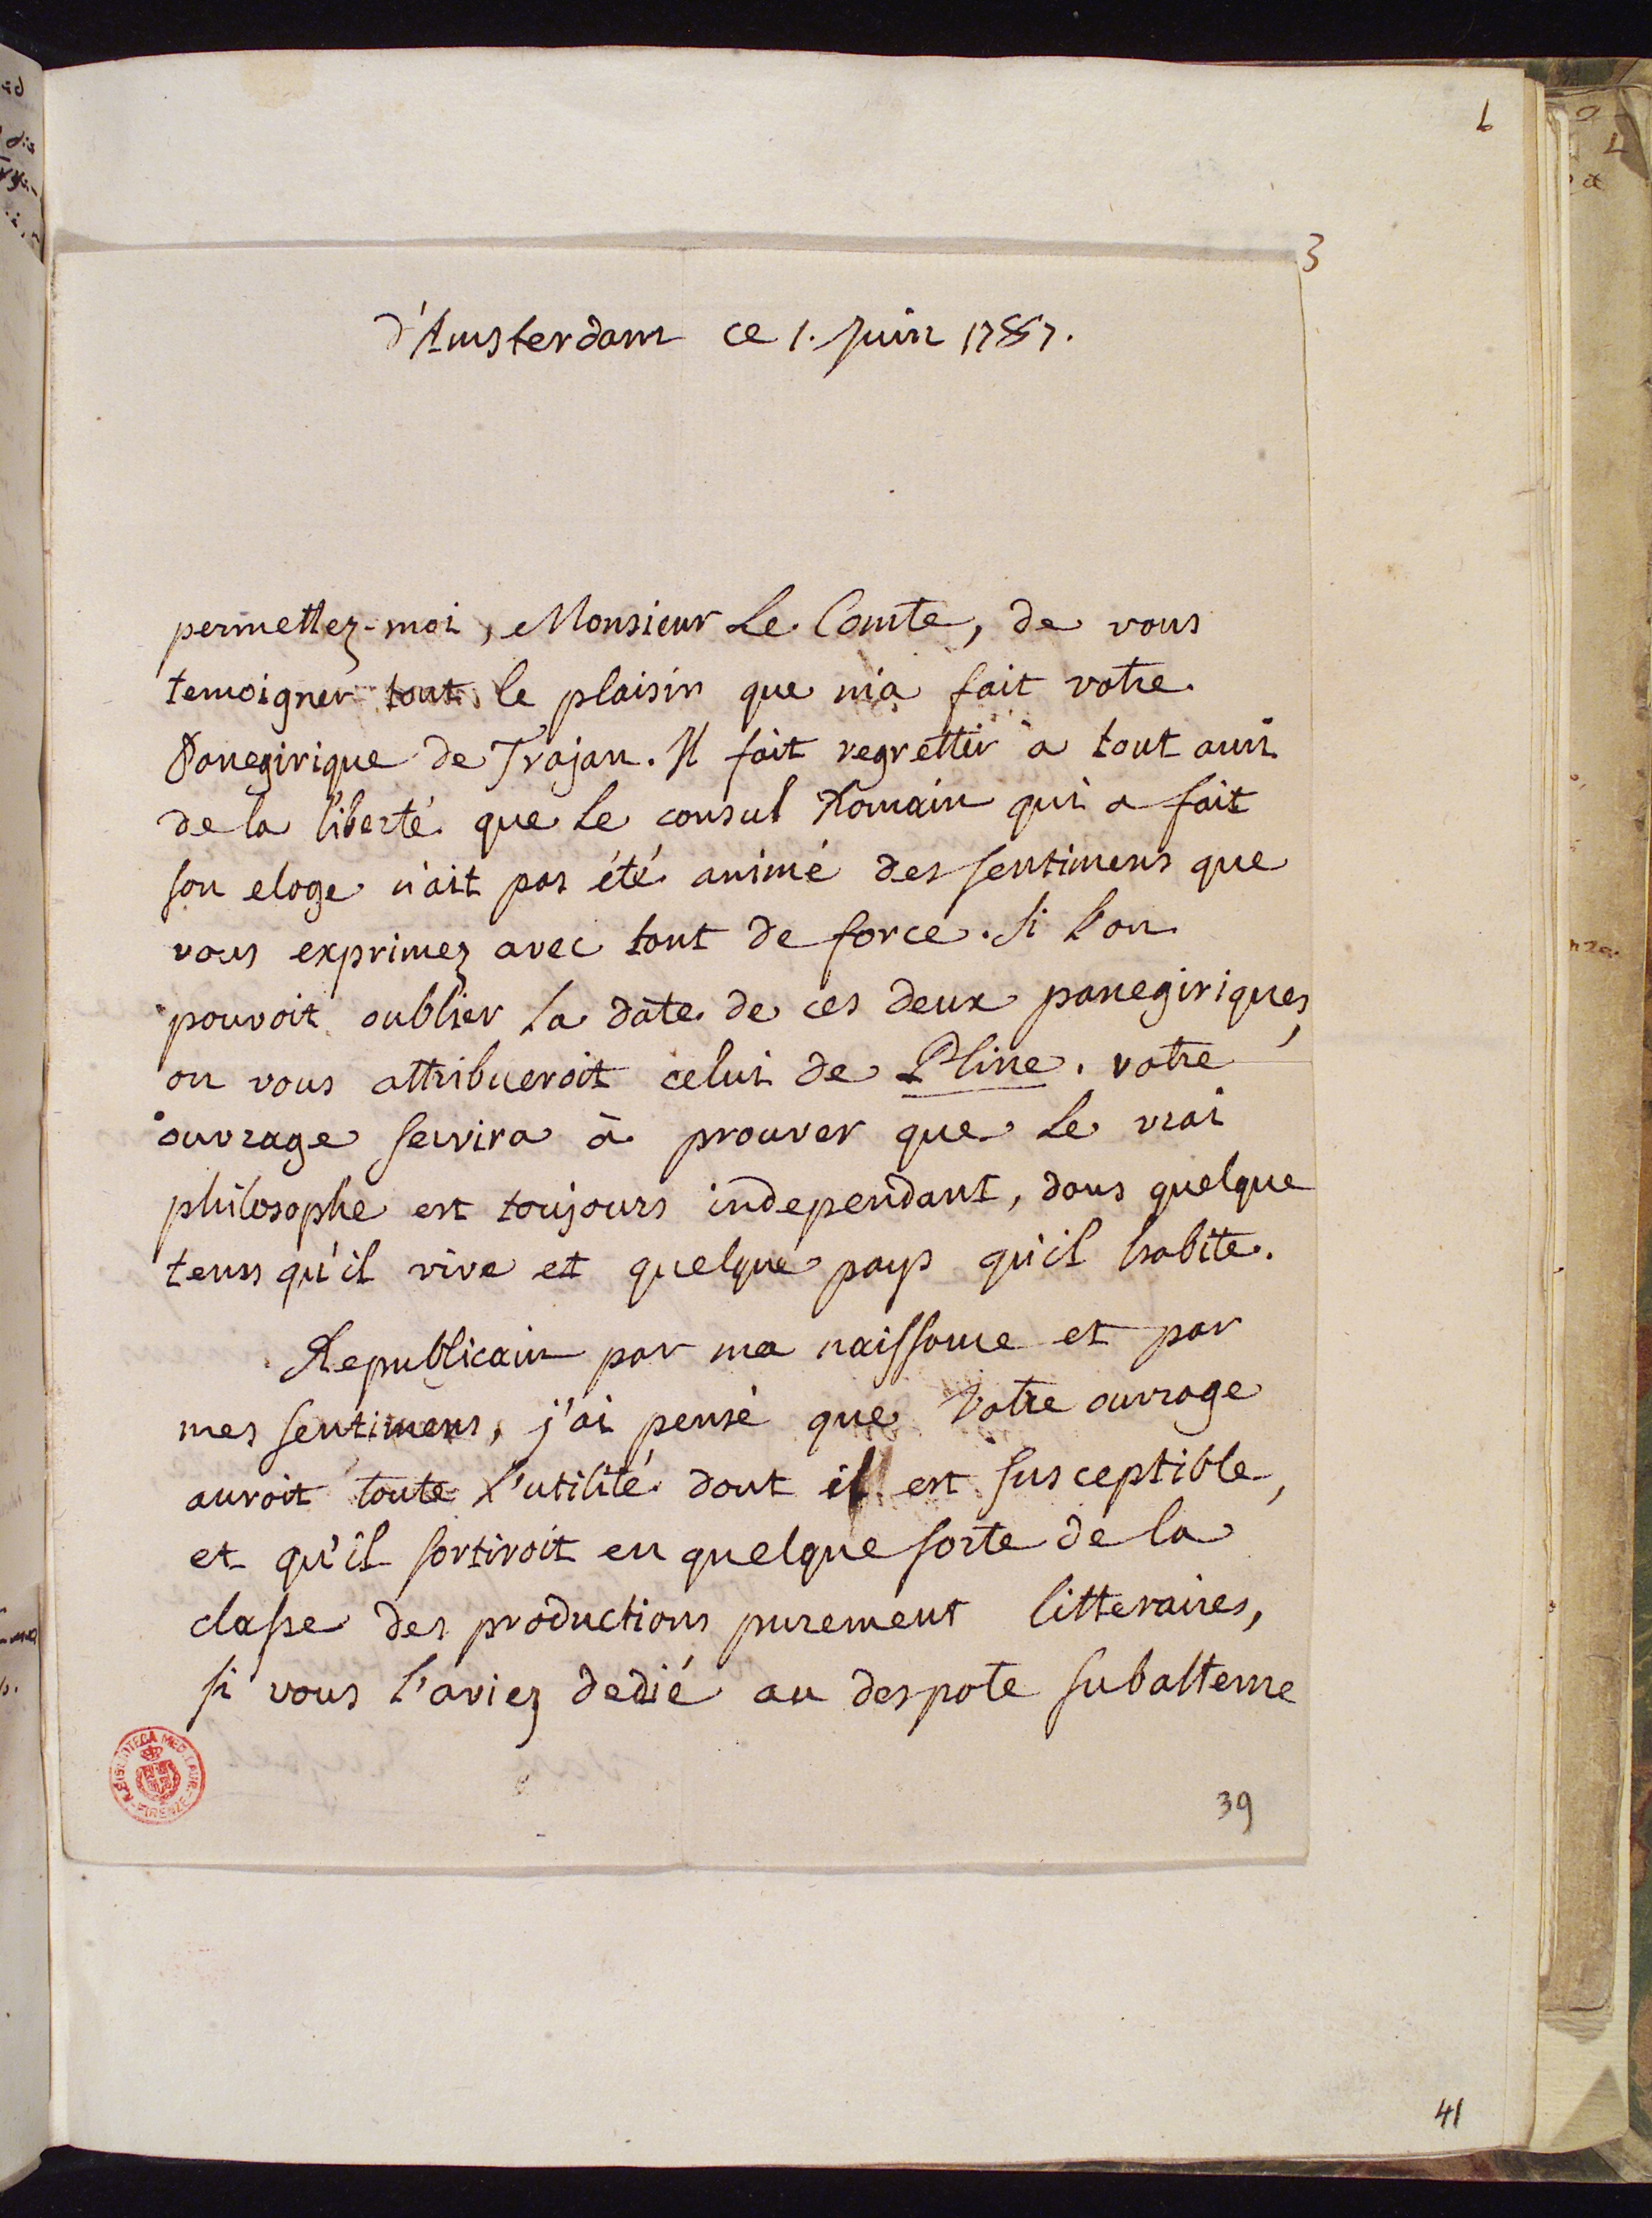 6
3
d'Amsterdam ce 1. Juin 1787.
permettez-moi, Monsieur Le Comte, de vous
temoigner tout le plaisir que m'a fait votre
Panegirique de Trajan. Il fait regretter à tout ami
de la liberté que Le consul Romain qui a fait
son eloge n'ait pas été animé des sentimens que
vous exprimez avec tant de force. Si l'on
pouvoit oublier La date de ces deux panegiriques,
on vous attribueroit celui de Pline. votre
ouvrage servira à prouver que Le vrai
philosophe est toujours independant, dans quelque
tems qu'il vive et quelque pays qu'il habite.
Republicain par ma naissance et par
mes sentimens, j'ai pensé que Votre ouvrage
auroit toute l'utilité dont il est susceptible,
et qu'il sortiroit en quelque sorte de la
classe des productions purement litteraires,
si vous l'aviez dedié au despote subalterne
39
41